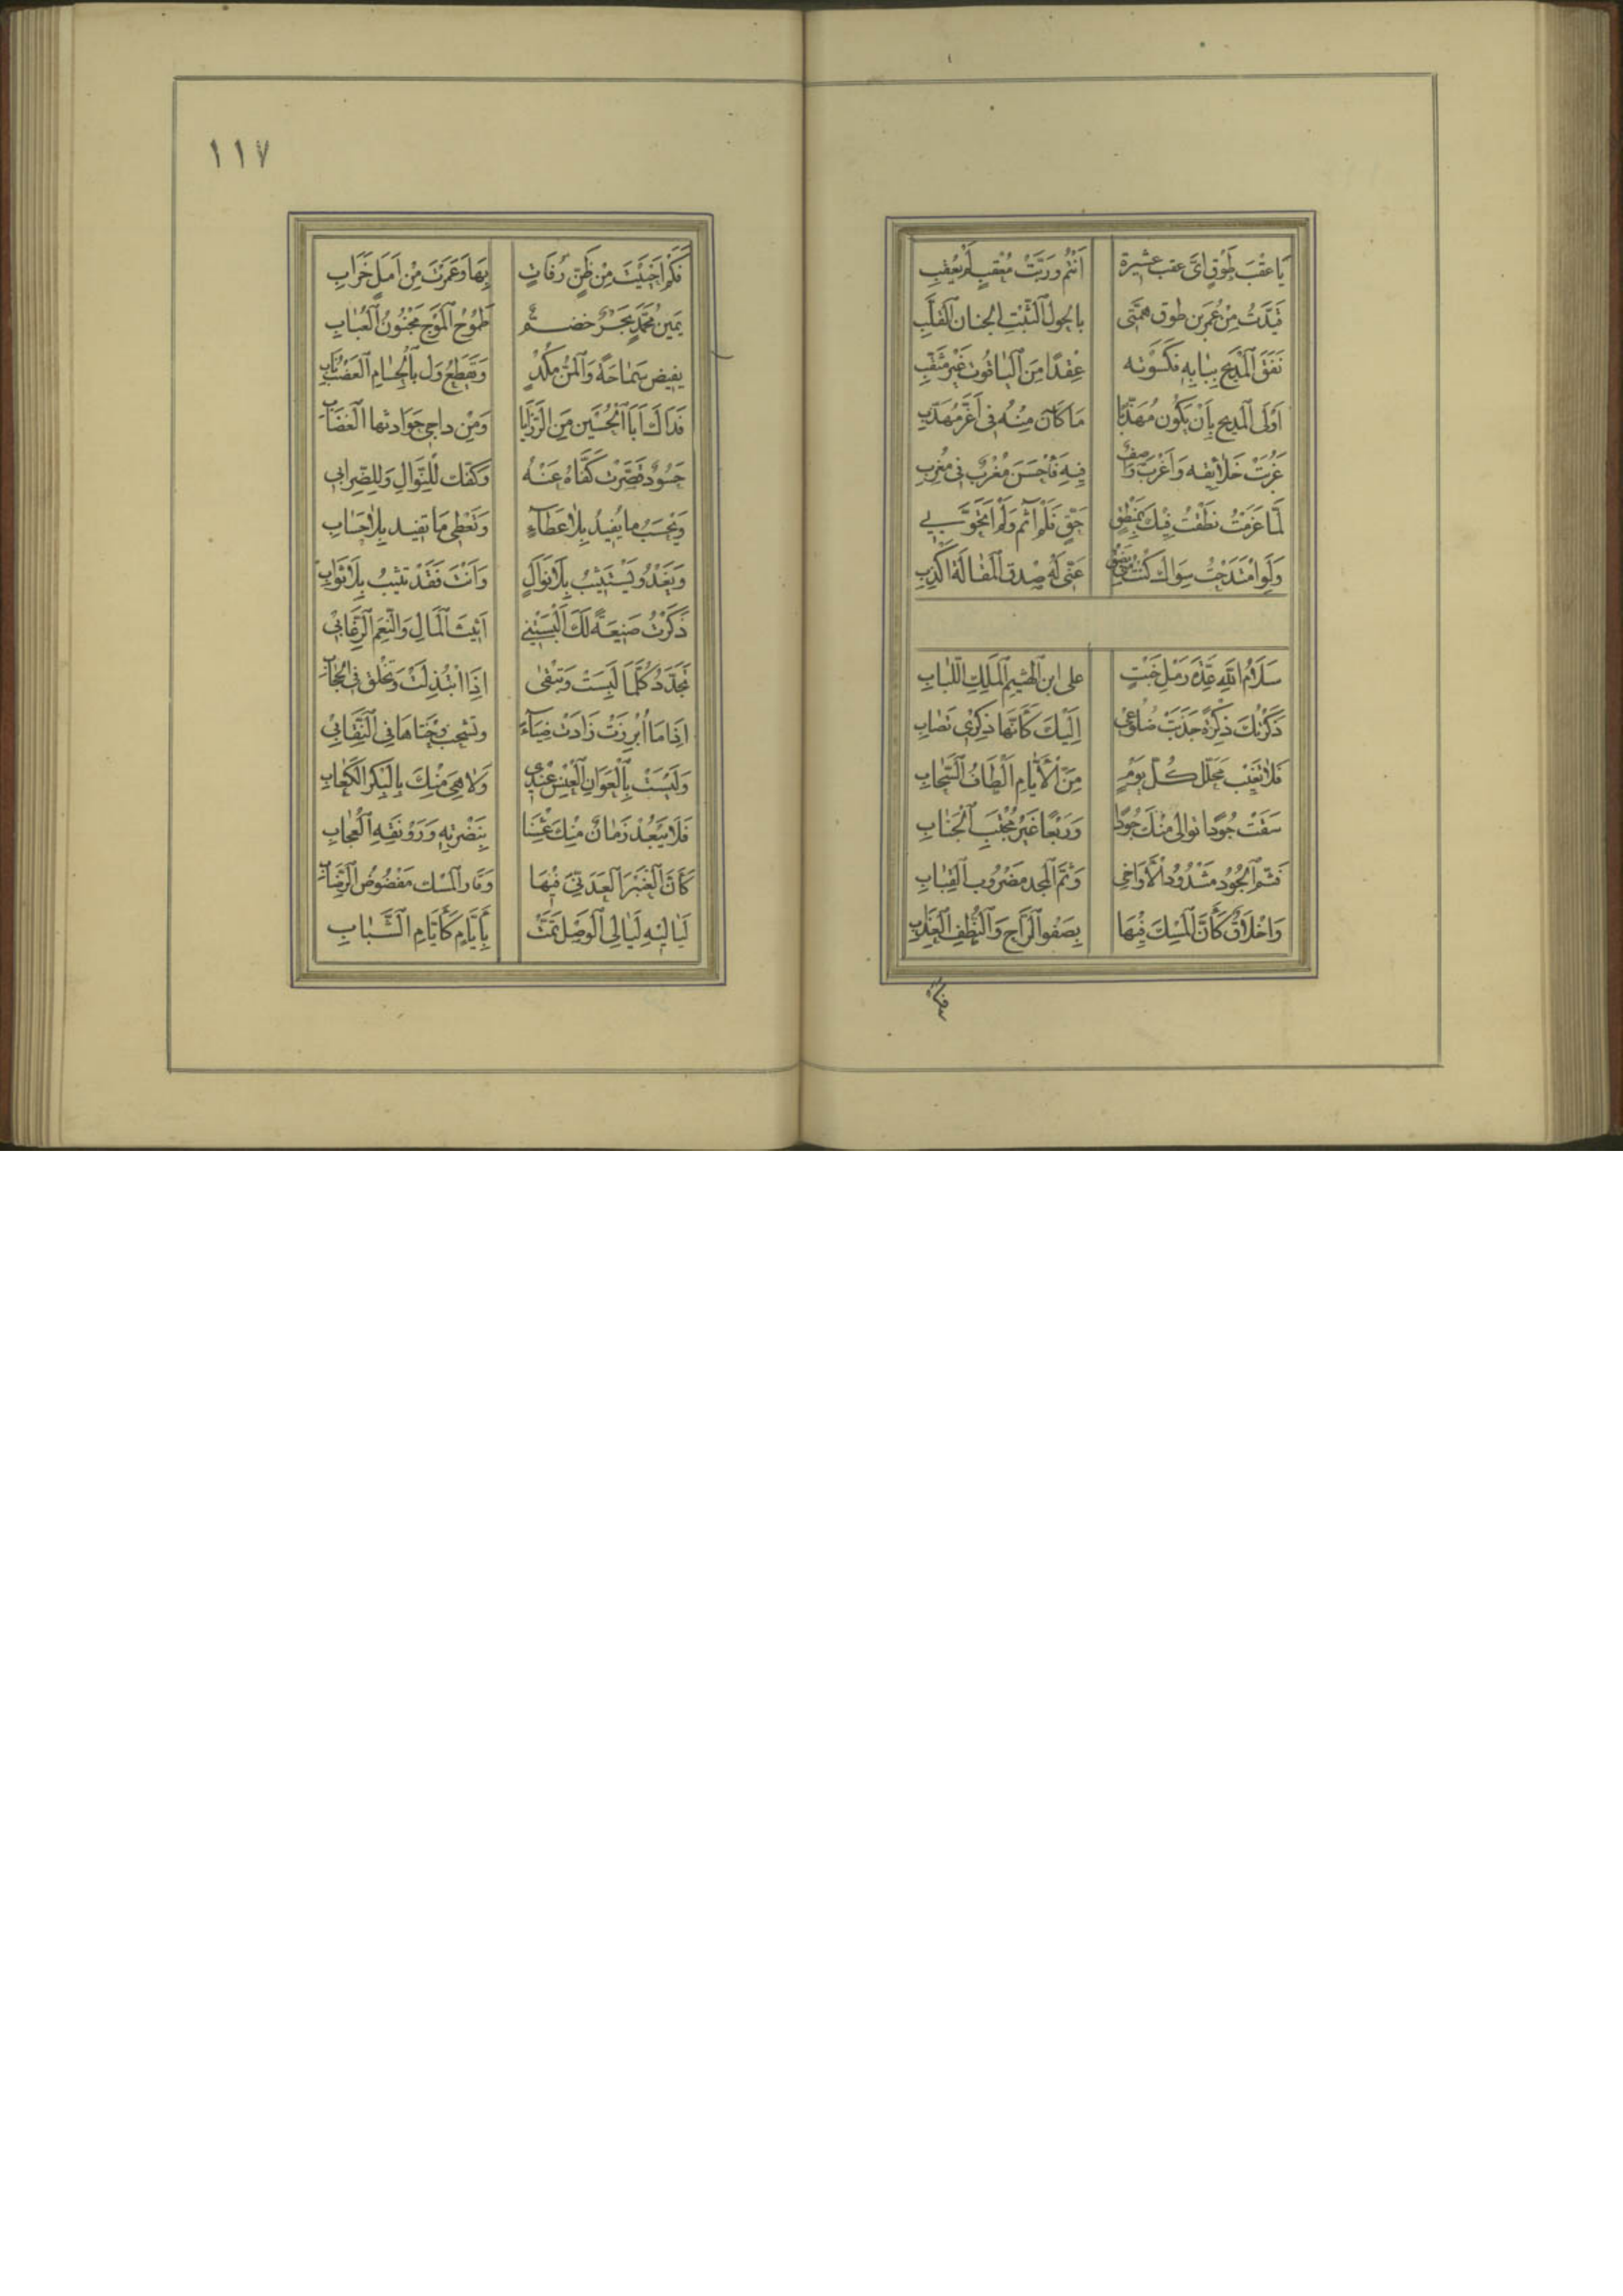 يَا عَقْبَ طَوْقٍ اَىُّ عقب عشيرة اَنْتُم وَرَبَّتُ مُعْقِبٍ لَم يُعْقِبِ
قَيَّدَتُ مِنْ عُمَر بن طوق همَّتى بالحول الثَّبْتِ الجنان القلَّبِ
نَفَقَ المَدِيح ببابِهِ فكَسَوْته عِقدًا مِنَ اليَاقُوت غَيْر مثَقَّبِ
اَوْلَى المَدِيح بِاَنْ يَكُون مُهَذّبًا مَا كَانَ مِنْهُ فى اَغَرَّ مُهَذَّبِ
غَرُبَتْ خَلَائِقه وَاَغْرَبَ وَاصِفٌ فِيهِ فَاَحْسَنَ مُغْرِبٌ فى مُغرِبِ
لَمَّا عَزَمْتُ نطَقْتُ فِيكَ بِمَنْطِقٍ حَقٍّ فَلَمْ آثم وَلَمْ اتَحَوَّبِ
وَلَو امْتَدَحْتُ سِوَاكَ كُنْتُ عَنّى لَه صِدق المقَالَة اَكْذِبِ
سَلَامُ اللّهِ عِدَّةَ رَمْلِ خَبْتٍ على ابن الهَيْثم المَلِكِ اللُّبَابِ
ذَكَرْتُكَ ذِكْرَةً جَذَبَتْ ضُلُوعى اِلَيْكَ كَأَنَّهَا ذِكْرَى تَصَابِ
فَلَا يُغِبْ مَحَلَّك كُلّ يَوْمٍ مِنَ الْأَيَّامِ اَلْطَافُ السَّحَابِ
سَقَتْ جُودًا نوالى مِنْكَ جُودًا وَرَبْعًا غَيْرَ مُجْتَنِبَ الجَنَابِ
فَثَم الجُودُ مَشْدُودُ الْأَوَاخى وَثَمَّ المجد مَضْرُوب القِبَابِ
وَاَخْلَاقٌ كَأَنَّ المِسْكَ فِيهَا بِصَفْو الرَّاحِ وَالنُّطَفِ العِذَابِ
١١٧
فَكَمْ اَحْيَيْتَ مِنْ ظَنٍّ رُفَاتٍ بِهَا وَعَمَرْتَ مِنْ اَمَلٍ خَرَابِ
يَمِينُ مُحَمَّدٍ بَحْرٌ خضمٌّ طَمُوحُ المَوْج مَجْنُونُ العُبَابِ
يفيض سَمَاحَةً وَالمُزْنُ مُكْدٍ وَيَقطَعُ وَل بالحُسَامِ العَضْبُ نَابِ
فَدَاكَ اَبَا الْحُسَيْن مِنَ الرَّزَايَا وَمِنْ داجى حَوَادثها الغضَابِ
حَسُودٌ قَصَّرَتْ كَفَّاهُ عَنْهُ وَكَفّك للنَّوَالِ وَللِضِّرابِ
وَيَحْسَبُ ما يُفِيدُ بِلَا عَطَآءٍ وَتَعْطِى مَا تفيد بِلَا حِسَابِ
وَيَغْدُو يَسْتَثِيبُ بِلَا نَوَالٍ وَاَنْتَ فَقَدْ تثيبُ بِلَا ثَوَابِ
ذَكَرْتُ صَنِيعَةً لَكَ اَلْبَسَتْنِى اَثِيث المَالِ وَالنِّعَم الرِّغَابِ
تَجَدَّدُ كُلَّمَا لَبِسَتْ وَتَبْقى اِذَا ابْتُذِلَتْ وَتَخْلق فى الحِجَابِ
اِذَا مَا اُبْرِزَتْ زَادَتْ ضِيَآءً وَتشحب وَجْنتاهَا فى النِّقَابِ
وَلَيْسَتْ بِالعَوَانِ العنْس عِنْدِى وَلَا هِىَ مِنْكَ بِالبِكْرِ الكَعَابِ
فَلَا يَبْعُدْ زَمَانٌ مِنْكَ عِشْنَا بِنَضْرَتِهِ وَرَوْنَقهِ العُجَابِ
كَأَنَّ العَنْبَرَ العَدَنِىَّ فِيهَا وَفَار المِسْك مَفْضُوضُ الرِّضَابِ
لَيَالِيْهِ لَيَالِى الوَصْل تَمَّتْ بِأَيَّامٍ كَأَيَّامِ الشَّبَابِ